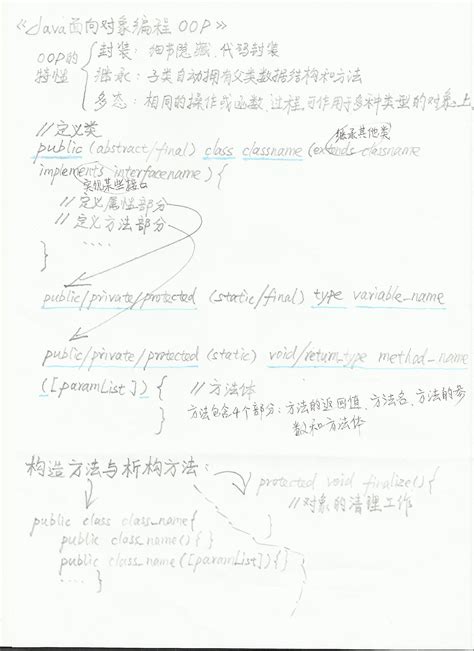 《Java面向对象编程 OOP》
OOP的特性
封装: 细节隐藏、代码封装
继承: 子类自动拥有父类数据结构和方法
多态: 相同的操作或函数、过程,可作用于多种类型的对象上
//定义类
继承其他类
public (abstract/final) class classname (extends classname
implements interfacename) {
实现某些接口
//定义属性部分
//定义方法部分
....
}
public/private/protected (static/final) type variable_name
public/private/protected (static) void/return_type method_name
([paramList]) { //方法体
方法包含4个部分: 方法的返回值、方法名、方法的参
数和方法体
}
构造方法与析构方法:
protected void finalize() {
//对象的清理工作
}
public class class_name{
public class_name() { }
public class_name([paramList]) {}
.... }